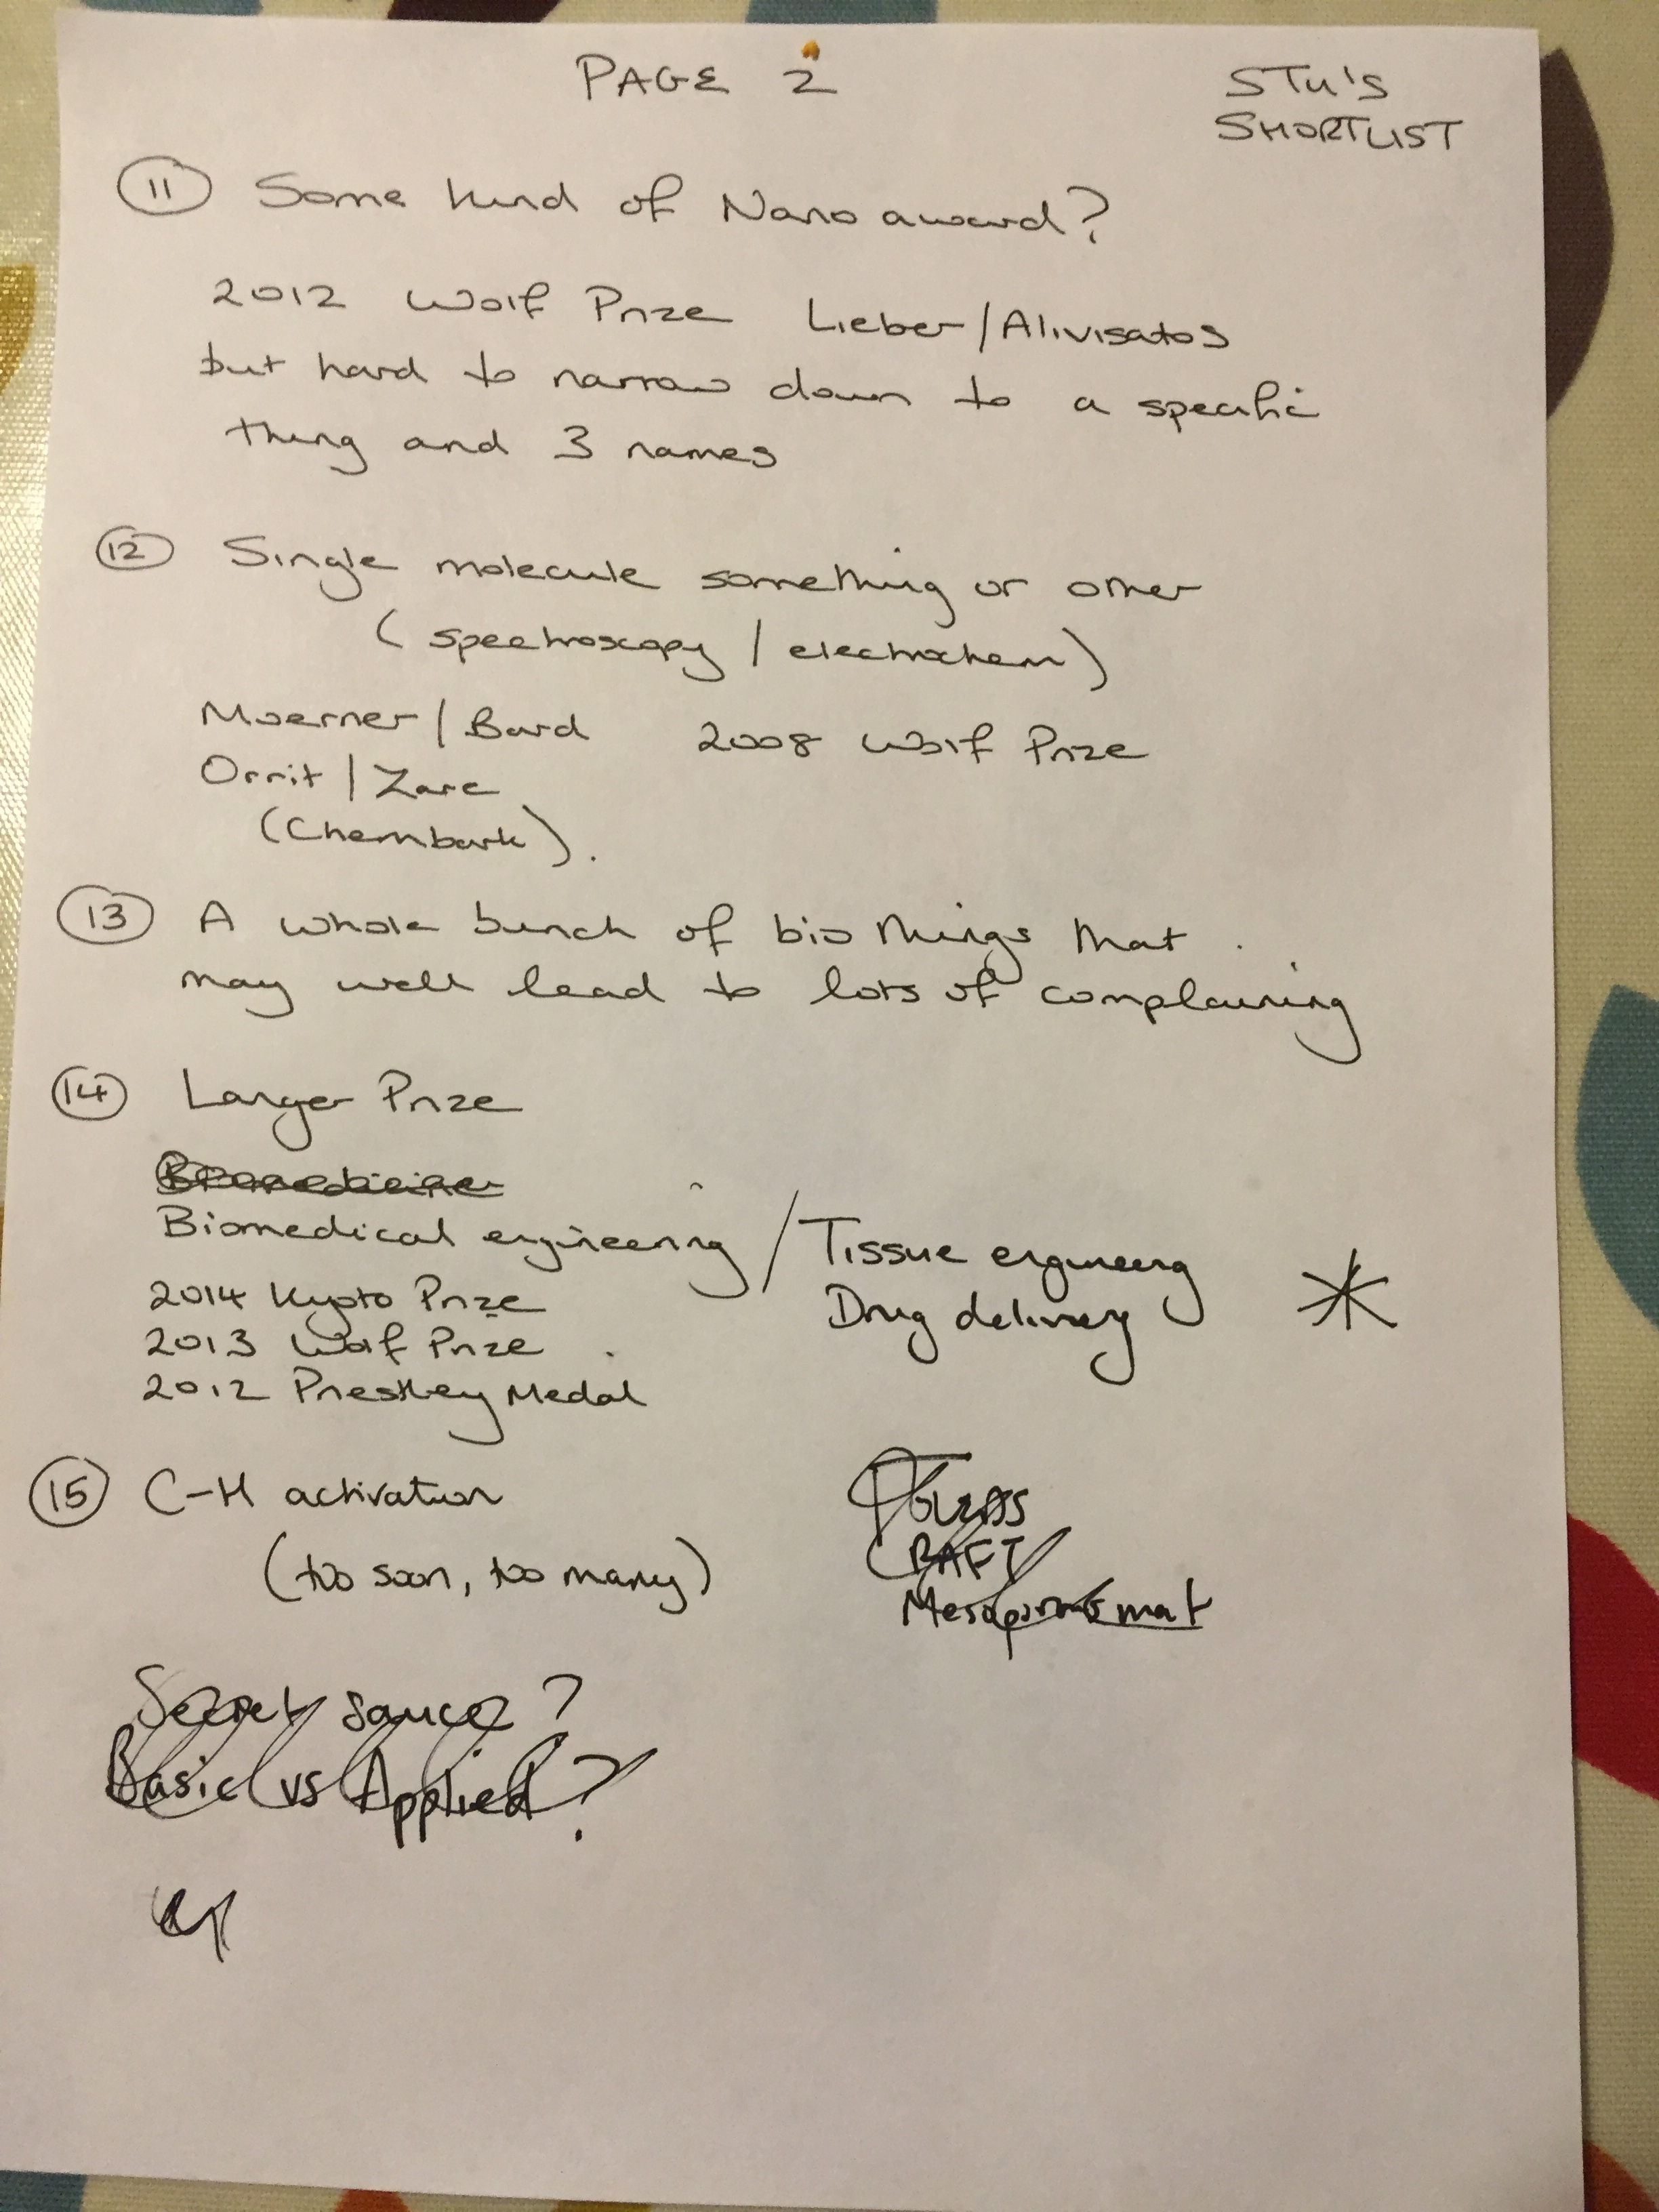 PAGE 2
STU'S
SHORTLIST
11 Some kind of Nano award?
2012 Wolf Prize Lieber/Alivisatos
but hard to narrow down to a specific
thing and 3 names
12 Single molecule something or other
(spectroscopy / electrochem)
Moerner / Bard 2008 Wolf Prize
Orrit / Zare
(Chembark).
13 A whole bunch of bio things that
may well lead to lots of complaining
14 Langer Prize
Biomedical engineering / Tissue engineering
Drug delivery *
2014 Kyoto Prize
2013 Wolf Prize
2012 Priestley Medal
15 C-H activation
(too soon, too many)
RAFT
Mesoporous mat
Secret sauce?
Basic vs Applied?